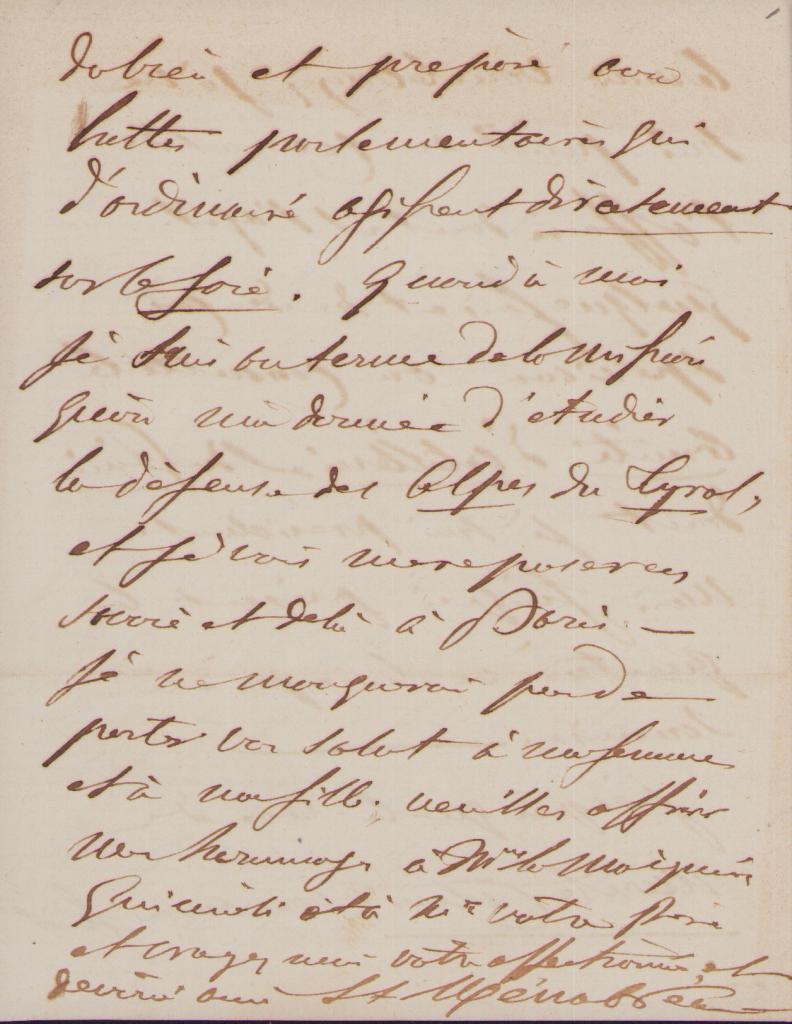 et préparé aux
luttes parlementaires qui
d'ordinaire agissent directement
sur le foie. Quand à moi
je suis au terme de la mission
qu'on m'a donnée d'étudier
la défense des Alpes du Tyrol,
et je vais me reposer en
Savoie et delà à Paris —
Je ne manquerai pas de
porter vos salut à ma femme
et à ma fille. veuillez offrir
mes hommages à Mme la Marquise
et à Mr votre Père
et croyez moi votre affectionné et
dévoué ami L F Ménabréa